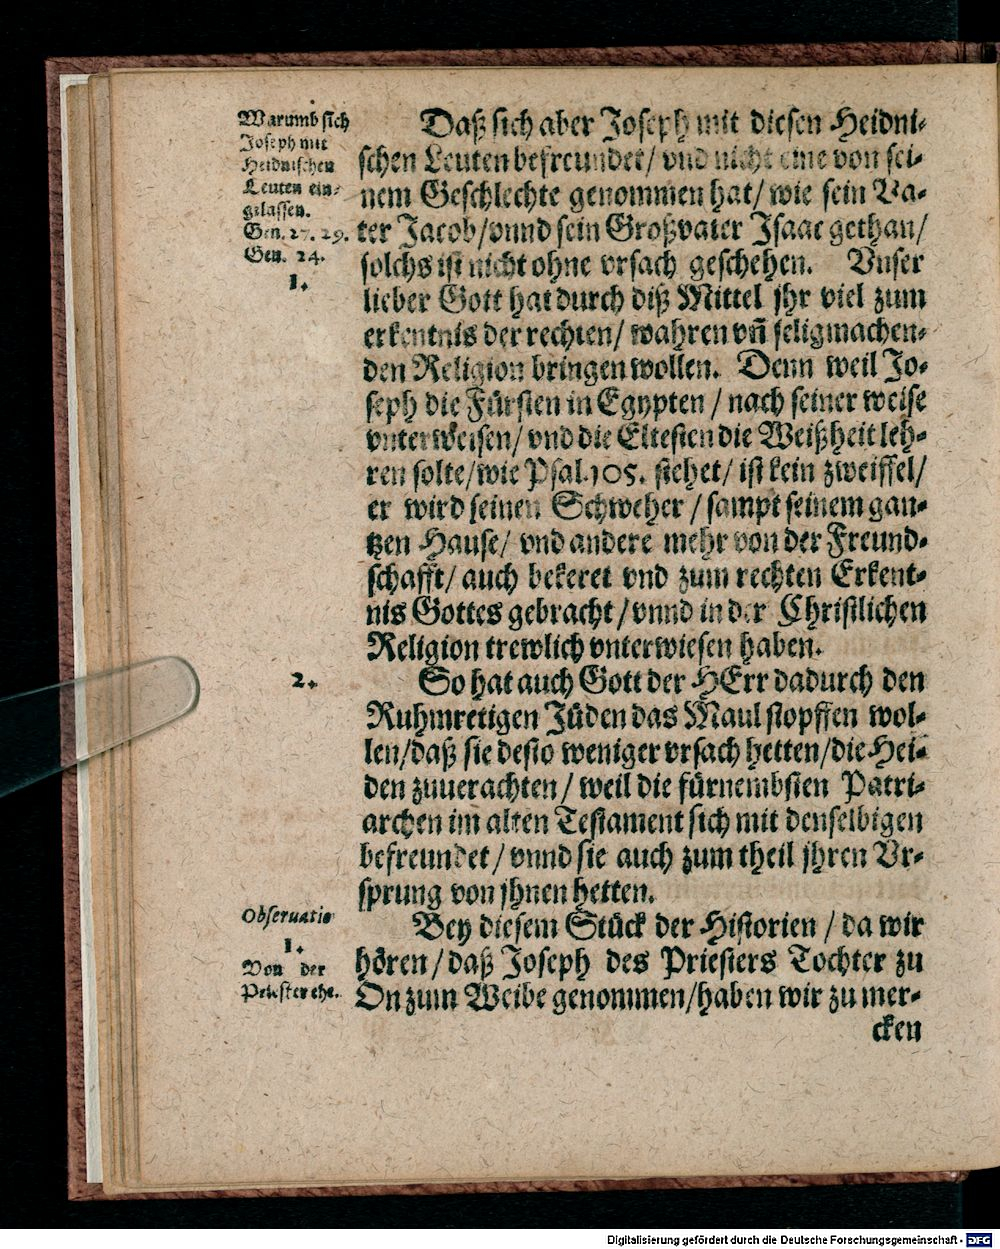 Warumb sich
Joseph mit
Heidnischen
Leuten ein-
gelassen.
Gen. 27. 29.
Gen. 24.
1.
Daß sich aber Joseph mit diesen Heidni-
schen Leuten befreundet/ vnd nicht eine von sei-
nem Geschlechte genommen hat/ wie sein Va-
ter Jacob/vnnd sein Großvater Isaac gethan/
solchs ist nicht ohne vrsach geschehen. Vnser
lieber Gott hat durch diß Mittel jhr viel zum
erkentnis der rechten/ wahren vñ seligmachen-
den Religion bringen wollen. Denn weil Jo-
seph die Fürsten in Egypten / nach seiner weise
vnterweisen/ vnd die Eltesten die Weißheit leh-
ren solte/wie Psal.105. stehet/ ist kein zweiffel/
er wird seinen Schweher / sampt seinem gan-
tzen Hause/ vnd andere mehr von der Freund-
schafft/ auch bekeret vnd zum rechten Erkent-
nis Gottes gebracht / vnnd in der Christlichen
Religion trewlich vnterwiesen haben.
2.
So hat auch Gott der HErr dadurch den
Ruhmretigen Jüden das Maul stopffen wol-
len/daß sie desto weniger vrsach hetten/die Hei-
den zuuerachten / weil die fürnembsten Patri-
archen im alten Testament sich mit denselbigen
befreundet / vnnd sie auch zum theil jhren Vr-
sprung von jhnen hetten.
Obseruatio
1.
Von der
Priester ehe.
Bey diesem Stück der Historien / da wir
hören / daß Joseph des Priesters Tochter zu
On zum Weibe genommen/haben wir zu mer-
cken
Digitalisierung gefördert durch die Deutsche Forschungsgemeinschaft - DFG